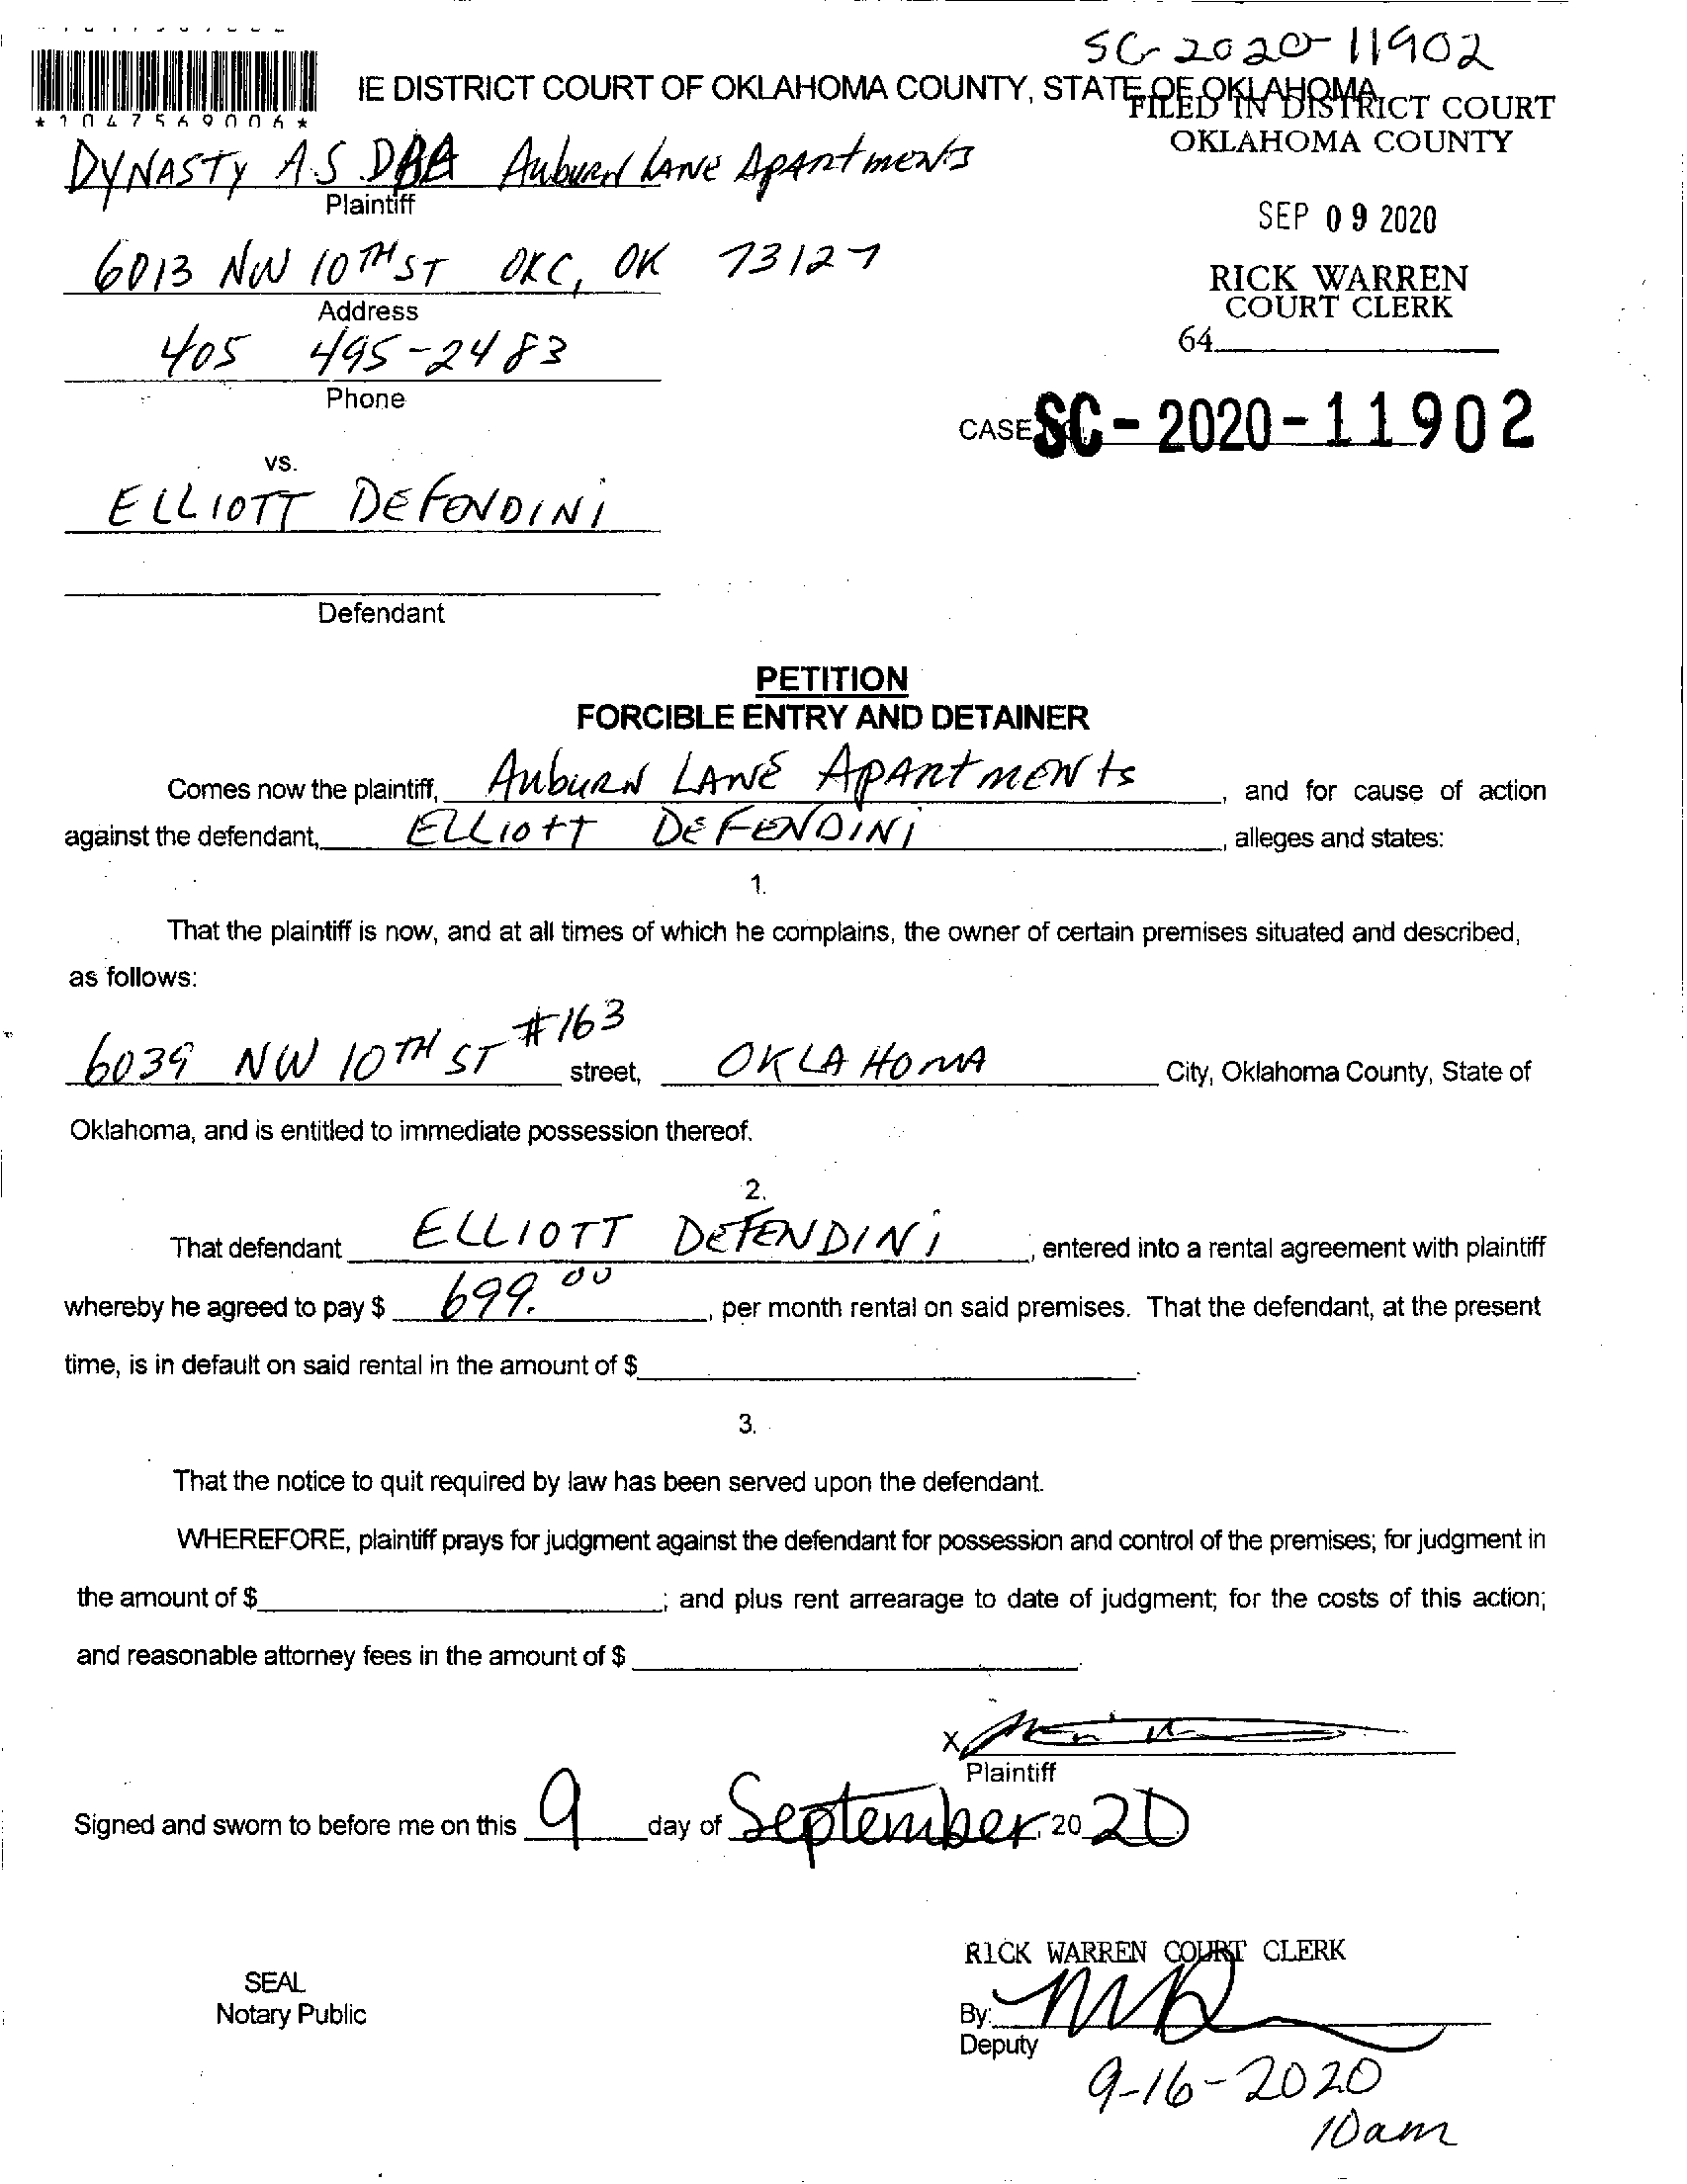 SC-2020-11902
IE DISTRICT COURT OF OKLAHOMA COUNTY, STATE OF OKLAHOMA
FILED IN DISTRICT COURT
OKLAHOMA COUNTY
*1047569006*
DYNASTY A.S DBA Auburn Lane Apartments
Plaintiff
SEP 09 2020
6013 NW 10TH ST OKC, OK 73127
Address
RICK WARREN
COURT CLERK
64
405 495-2483
Phone
CASE SC-2020-11902
vs.
ELLIOTT DEFENDINI
Defendant
PETITION
FORCIBLE ENTRY AND DETAINER
Comes now the plaintiff, Auburn LANE Apartments, and for cause of action
against the defendant, Elliott DEFENDINI, alleges and states:
1.
That the plaintiff is now, and at all times of which he complains, the owner of certain premises situated and described,
as follows:
6039 NW 10TH ST #163 street, OKLAHOMA City, Oklahoma County, State of
Oklahoma, and is entitled to immediate possession thereof.
2.
That defendant ELLIOTT DEFENDINI, entered into a rental agreement with plaintiff
whereby he agreed to pay $ 699.00, per month rental on said premises. That the defendant, at the present
time, is in default on said rental in the amount of $.
3.
That the notice to quit required by law has been served upon the defendant.
WHEREFORE, plaintiff prays for judgment against the defendant for possession and control of the premises; for judgment in
the amount of $; and plus rent arrearage to date of judgment; for the costs of this action;
and reasonable attorney fees in the amount of $
X
Plaintiff
Signed and sworn to before me on this 9 day of September, 20 20
RICK WARREN COURT CLERK
SEAL
Notary Public
By:
Deputy
9-16-2020
10am